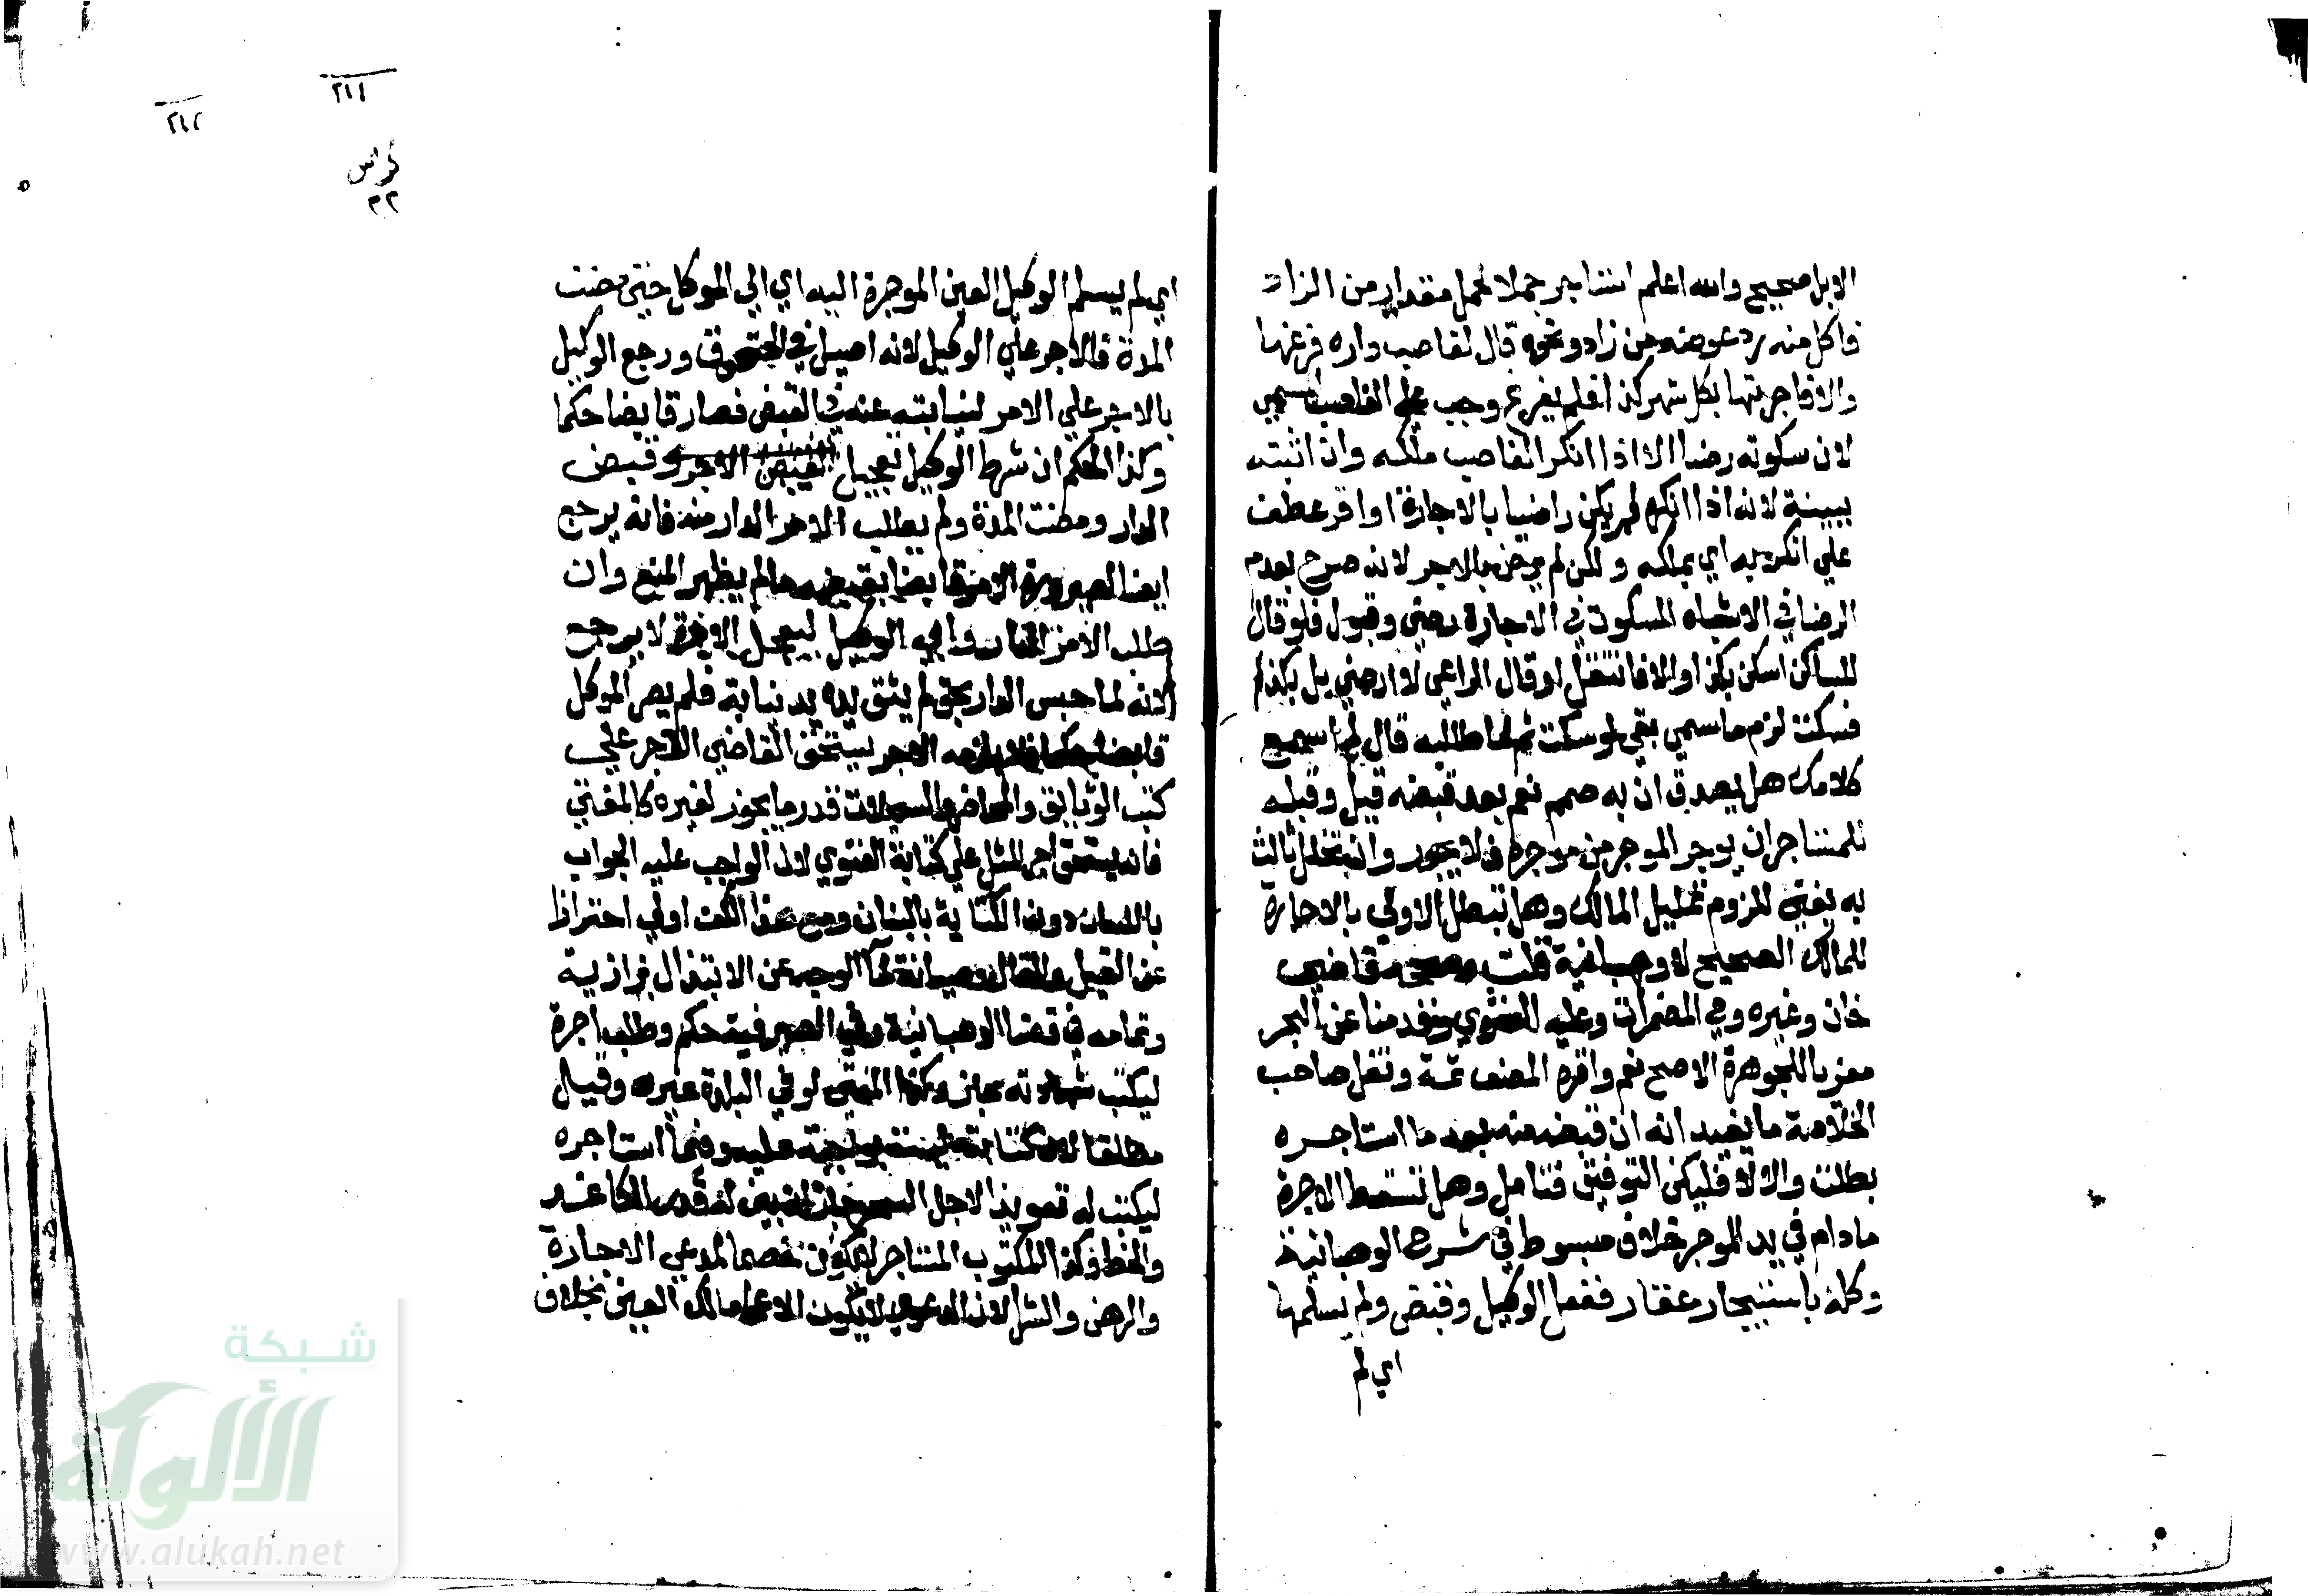 الابل صحيح والله اعلم استاجر جملا لحمل مقدار من الزاد
فاكل منه رد عوضه من زاد ونحوه قال لغاصب داره فرغها
والا فاجرتها بكل شهر كذا فلم يفرغ وجب علي الغاصب المسمي
لان سكوته رضا الا اذا انكر الغاصب ملكه وان اثبته
ببينة لانه اذا انكره لم يكن راضيا بالاجارة او اقر عطف
علي انكر به اي بملكه ولكن لم يرض بالاجر لانه صرح بعدم
الرضا في الاشباه السكوت في الاجارة رضي وقبول فلو قال
للساكن اسكن بكذا والا فانتقل او قال الراعي لا ارضي بل بكذا
فسكت لزم ما سمي بقي لو سكت ثم لما طالبه قال لم اسمع
كلامك هل يصدق ان به صمم نعم بعد قبضه قيل وقبله
للمستاجر ان يوجر الموجر من موجره فلا يجوز وان تخلل ثالث
به يفتي للزوم تمليك المالك وهل تبطل الاولي بالاجارة
للمالك الصحيح لا وهبانية قلت وصححه قاضي
خان وغيره وفي المضمرات وعليه الفتوي وقدمنا عن البحر
معزيا للجوهرة الاصح نعم واقره المصنف ثمة ونقل صاحب
الخلاصة ما يفيد انه ان قبضه منه بعد ما استاجره
بطلت والا لا فليكن التوفيق فتامل وهل تسقط الاجرة
ما دام في يد الموجر خلاف مبسوط في شرح الوهبانية
وكله باستيجار عقار ففعل الوكيل وقبض ولم يسلمها
اي لم
٢١١
٢١٢
كراس
٢٢
اي لم يسلم الوكيل العين الموجرة اليه اي الي الموكل حتي مضت
المدة فالاجر علي الوكيل لانه اصيل في الحقوق ورجع الوكيل
بالاجر علي الامر لنيابته عنه في القبض فصار قابضا حكما
وكذا الحكم ان شرط الوكيل تعجيل الاجر وقبض
الدار ومضت المدة ولم يطلب الامر الدار منه فانه يرجع
ايضا لصيرورة الامر قابضا بقبضه ما لم يظهر المنع وان
طلب الامر الدار وابي الوكيل ليعجل الاجرة لا يرجع
لانه لما حبس الدار بحق لم يبق يده يد نيابة فلم يصر الموكل
قابضا حكما فلا يلزمه الاجر يستحق القاضي الاجر علي
كتب الوثايق والمحاضر والسجلات قدر ما يجوز لغيره كالمفتي
فانه يستحق اجر المثل علي كتابة الفتوي لان الواجب عليه الجواب
باللسان دون الكتابة بالبنان ومع هذا الكف اولي احترازا
عن القيل والقال وصيانة لماء الوجه عن الابتذال بزازية
وتمامه في قضا الوهبانية وفي الصيرفية حكم وطلب اجرة
ليكتب شهادته جاز وكذا المفتي لو في البلدة غيره وقيل
مطلقا لان كتابته ليست بواجبة عليه وفيها استاجره
ليكتب له تعويذا لاجل السحر جاز ان بين له قدر الكاغد
والخط وكذا المكتوب المستاجر لا يكون خصما لمدعي الاجارة
والرهن والشرا لان الدعوي لا تكون الا علي مالك العين بخلاف
شبكة
الألوكة
www.alukah.net